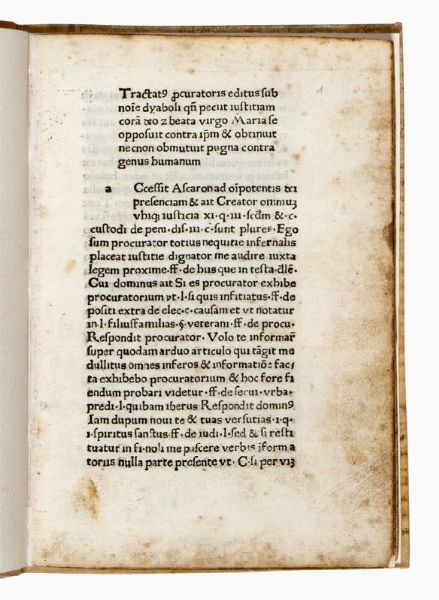 Tractatꝰ ꝓcuratoris editus sub
noīe dyaboli qñ pecut iustitiam
corā xo ⁊ beata virgo Maria se
opposuit contra ip̄m & obtinuit
necnon obmutuit pugna contra
genus humanum
a Ccessit Ascaron ad oīpotentis xi
presenciam & ait Creator omniuꝫ
vbiqꝫ iusticia xi·q·iii·scdm̄ &·c·
custodi de peni·dis·iii·c·sunt plures·Ego
sum procurator totius nequitie infernalis
placeat iustitie dignator me audire iuxta
legem proxime·ff·de hus que in testa·dlē·
Cui dominus ait Si es procurator exhibe
procuratorium vt·l·si quis infitiatus·ff·de
positi extra de elec·c·causam et vt notatur
in·l·filiusfamilias·§·veterani·ff·de procu·
Respondit procurator·Volo te informar̄
super quodam arduo articulo qui tāgit me
dullitus omnes inferos & informatiōe fac̄
ta exhibebo procuratorium & hoc fore fi
endum probari videtur·ff·de serui·vrba·
predi·l·quibam iberus Respondit dominꝰ
Iam dupum noui te & tuas versutias·i·q·
i·spiritus sanctus·ff·de iudi·l·sed & si resti
tuatur in fi·noli me pascere verbis īforma
toriis nulla parte presente vt·C·si per viꝫ